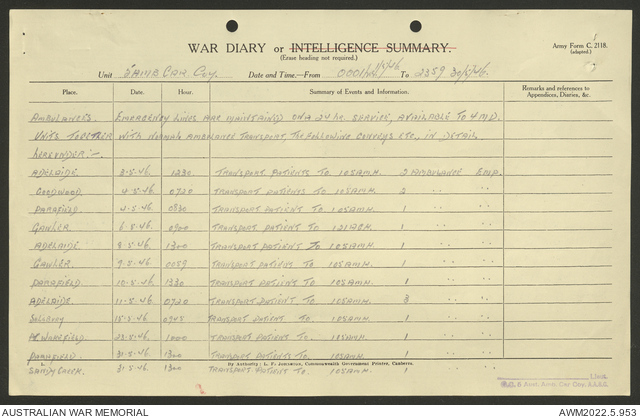 WAR DIARY or INTELLIGENCE SUMMARY.
(Erase heading not required.)
Army Form C. 2118.
(adapted.)
Unit CAR COY. Date and Time.—From 0001 To 2359 30/5/46.
Place. Date. Hour. Summary of Events and Information. Remarks and references to Appendices, Diaries, &c.
AMBULANCES. EMERGENCY LINES ARE MAINTAINED ON A 24 hr. SERVICE, AVAILABLE TO 4 MD.
UNITS TOGETHER WITH NORMAL AMBULANCE TRANSPORT, The following CONVEYS ETC., IN DETAIL
HEREUNDER:-
ADELAIDE 3.5.46. 1230 TRANSPORT PATIENTS TO 105 AMH. 2 AMBULANCE EMP.
GOODWOOD 4.5.46 0720 TRANSPORT PATIENTS TO 105 AMH. 2 " "
PARAFIELD. 4.5.46. 0830 TRANSPORT PATIENT TO 105 AMH. 1 " "
GAWLER 6.5.46 0900 TRANSPORT PATIENT TO 1 " "
ADELAIDE 8.5.46 1300 TRANSPORT PATIENT TO 105 AMH. 1 " "
GAWLER 9.5.46 0059 TRANSPORT PATIENT TO 105 AMH. 1 " "
PARAFIELD 10.5.46 1330 TRANSPORT PATIENT TO 105 AMH. 1 " "
ADELAIDE 11.5.46. 0720 TRANSPORT PATIENT TO 105 AMH. 3 " "
Salisbury 15.5.46 0945 TRANSPORT PATIENT TO 105 AMH. 1 " "
Pt. WAKEFIELD 23.5.46. 1000 TRANSPORT PATIENT TO 105 AMH. 1 " "
PARAFIELD. 31.5.46 1300 TRANSPORT PATIENTS TO 105 AMH. 1 " "
By Authority: L. F. Johnston, Commonwealth Government Printer, Canberra.
SANDY CREEK. 31.5.46 1300 TRANSPORT PATIENT TO 105 AMH. 1 " "
Lieut.
O.C. Aust. Amb. Car Coy. A.A.S.C.
AUSTRALIAN WAR MEMORIAL AWM2022.5.953